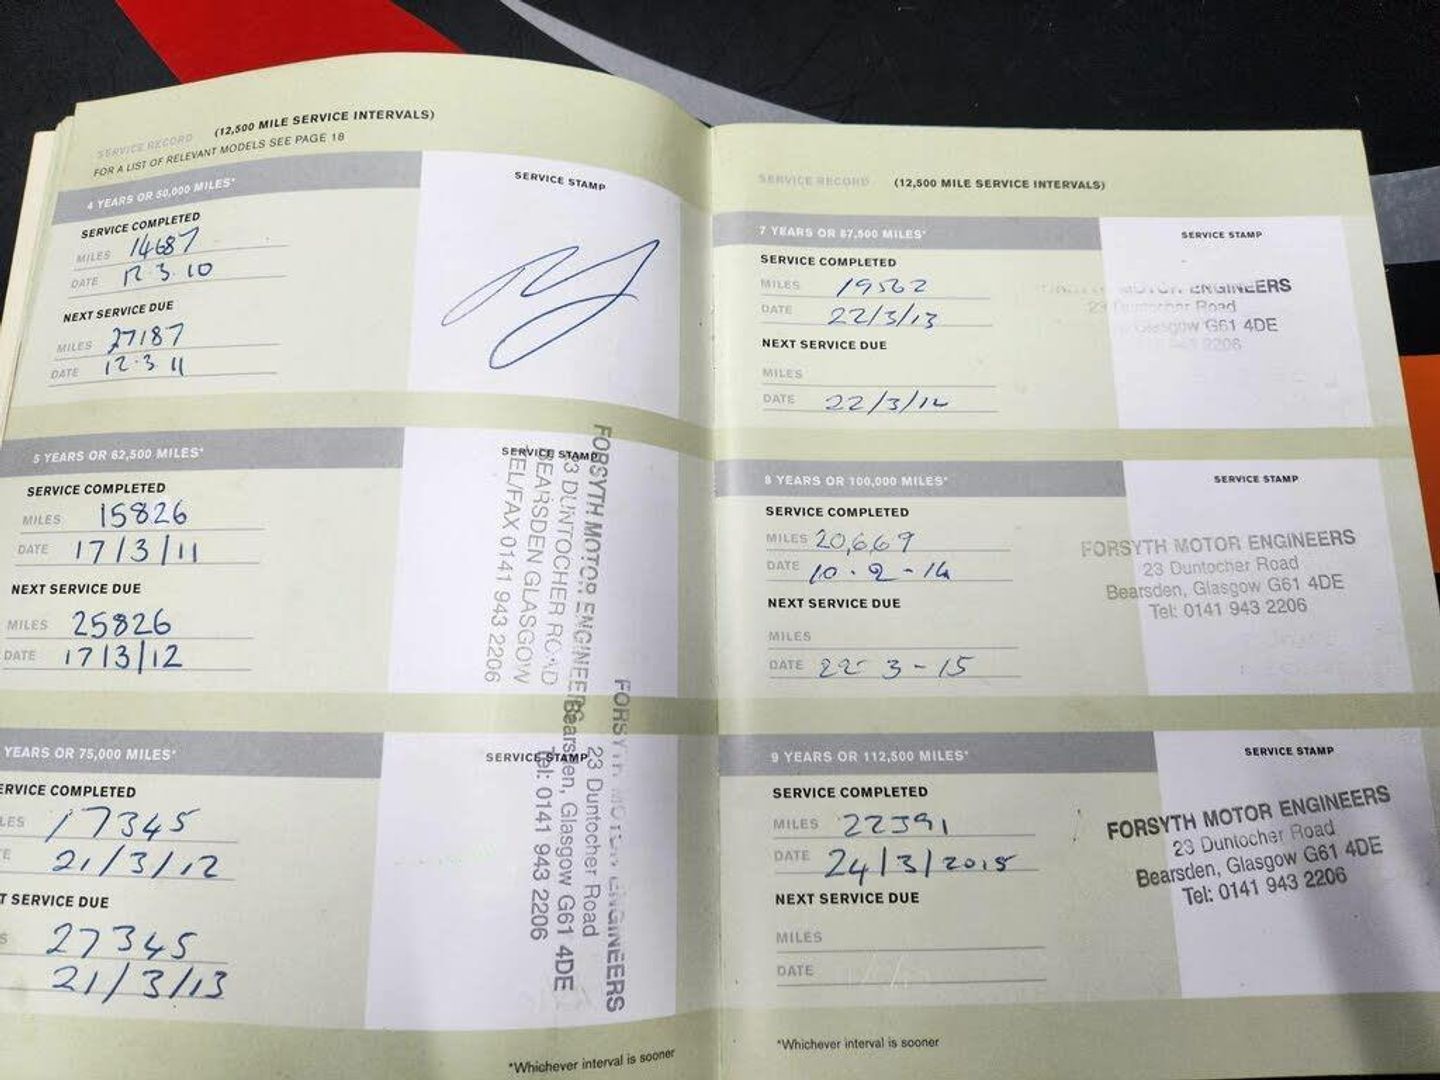 SERVICE RECORD (12,500 MILE SERVICE INTERVALS)
FOR A LIST OF RELEVANT MODELS SEE PAGE 18
4 YEARS OR 50,000 MILES*
SERVICE STAMP
SERVICE COMPLETED
MILES 14687
DATE 12.3.10
NEXT SERVICE DUE
MILES 27187
DATE 12.3.11
5 YEARS OR 62,500 MILES*
SERVICE STAMP
SERVICE COMPLETED
MILES 15826
DATE 17/3/11
NEXT SERVICE DUE
MILES 25826
DATE 17/3/12
FORSYTH MOTOR ENGINEERS
23 DUNTOCHER ROAD
BEARSDEN GLASGOW
TEL/FAX 0141 943 2206
YEARS OR 75,000 MILES*
SERVICE STAMP
SERVICE COMPLETED
MILES 17345
DATE 21/3/12
NEXT SERVICE DUE
27345
21/3/13
FORSYTH MOTOR ENGINEERS
23 Duntocher Road
Bearsden, Glasgow G61 4DE
Tel: 0141 943 2206
*Whichever interval is sooner
SERVICE RECORD (12,500 MILE SERVICE INTERVALS)
7 YEARS OR 87,500 MILES*
SERVICE STAMP
SERVICE COMPLETED
MILES 19562
DATE 22/3/13
NEXT SERVICE DUE
MILES
DATE 22/3/14
MOTOR ENGINEERS
23 Duntocher Road
Glasgow G61 4DE
943 2206
8 YEARS OR 100,000 MILES*
SERVICE STAMP
SERVICE COMPLETED
MILES 20,669
DATE 10.2.14
NEXT SERVICE DUE
MILES
DATE 22-3-15
FORSYTH MOTOR ENGINEERS
23 Duntocher Road
Bearsden, Glasgow G61 4DE
Tel: 0141 943 2206
9 YEARS OR 112,500 MILES*
SERVICE STAMP
SERVICE COMPLETED
MILES 22391
DATE 24/3/2015
NEXT SERVICE DUE
MILES
DATE
FORSYTH MOTOR ENGINEERS
23 Duntocher Road
Bearsden, Glasgow G61 4DE
Tel: 0141 943 2206
*Whichever interval is sooner